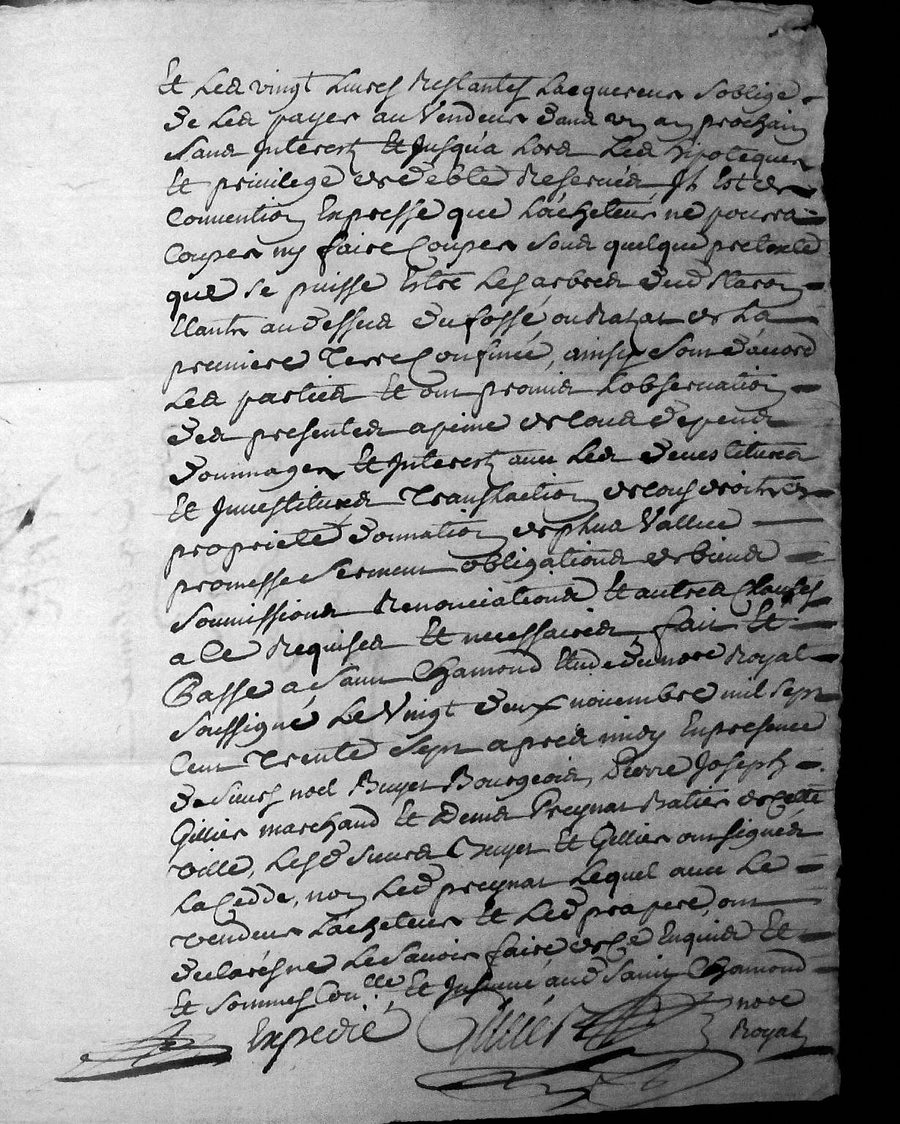 Et Les vingt Livres Restantes Lacquereur soblige
de Les payer au vendeur dans un an prochain
sans Interest Et Jusqua Lors Les ypoteques
Et privilege de deble Reservés Il Est de
Convention Expresse que Lácheteur ne pourra
Couper ny faire Couper sous quelque pretexte
que se puisse Estre Les arbres dud
Etants au dessus du fossé ou Razat de La
premiere Terre Confinée, ainsy sont dácord
Les parties Et ont promis Lobservation
des presentes a peine de tous depens
dommages Et Interest avec Les devestitures
Et Investitures Translaction de tous droits de
proprieté donnation de plus Vallue
promesse serment obligations de biens
soumissions Renonciations Et autres Clauses
a ce Requises Et necessaires, fait Et
Passé a, Saint Chamond Etude du nore Royal
soussigné Le Vingt deux novembre mil sept
Cent Trente Sept apres midy En presence
de Sieurs noel Bruyet Bourgeois, Pierre Joseph
Gillier marchand Et Denis Preynat de Cette
ville, Lesd Sieurs Bruyet Et Gillier ont signés
La Cedde, non Led preynat Lequel avec Le
vendeur Lácheteur Et Led ont
declaré ne Le savoir faire de ce Enquis Et
Et sommes Con.lle Et Insinué aud Saint Chamond
Expedié Gillier nore
Royal